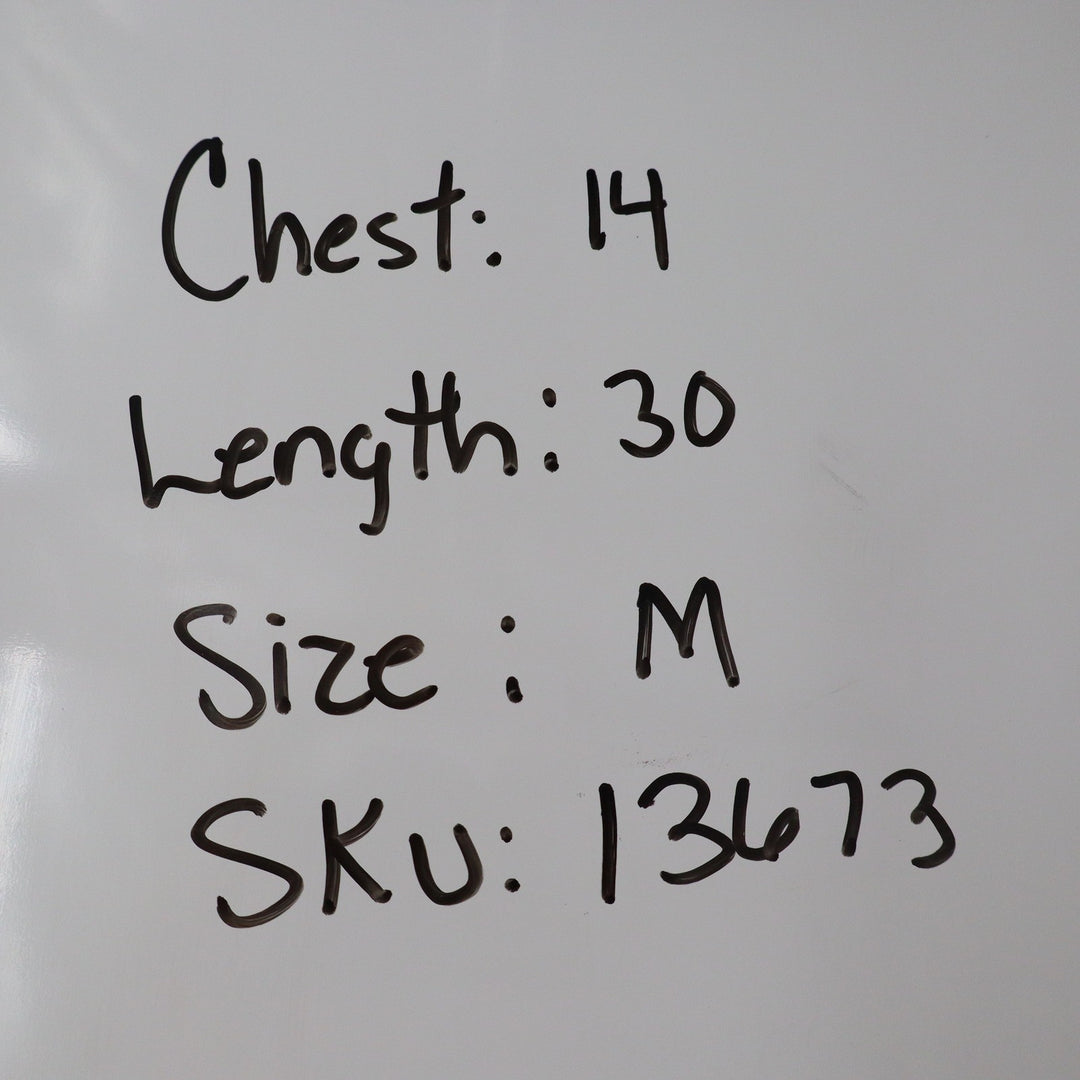 Chest: 14
Length: 30
Size: M
SKU: 13673